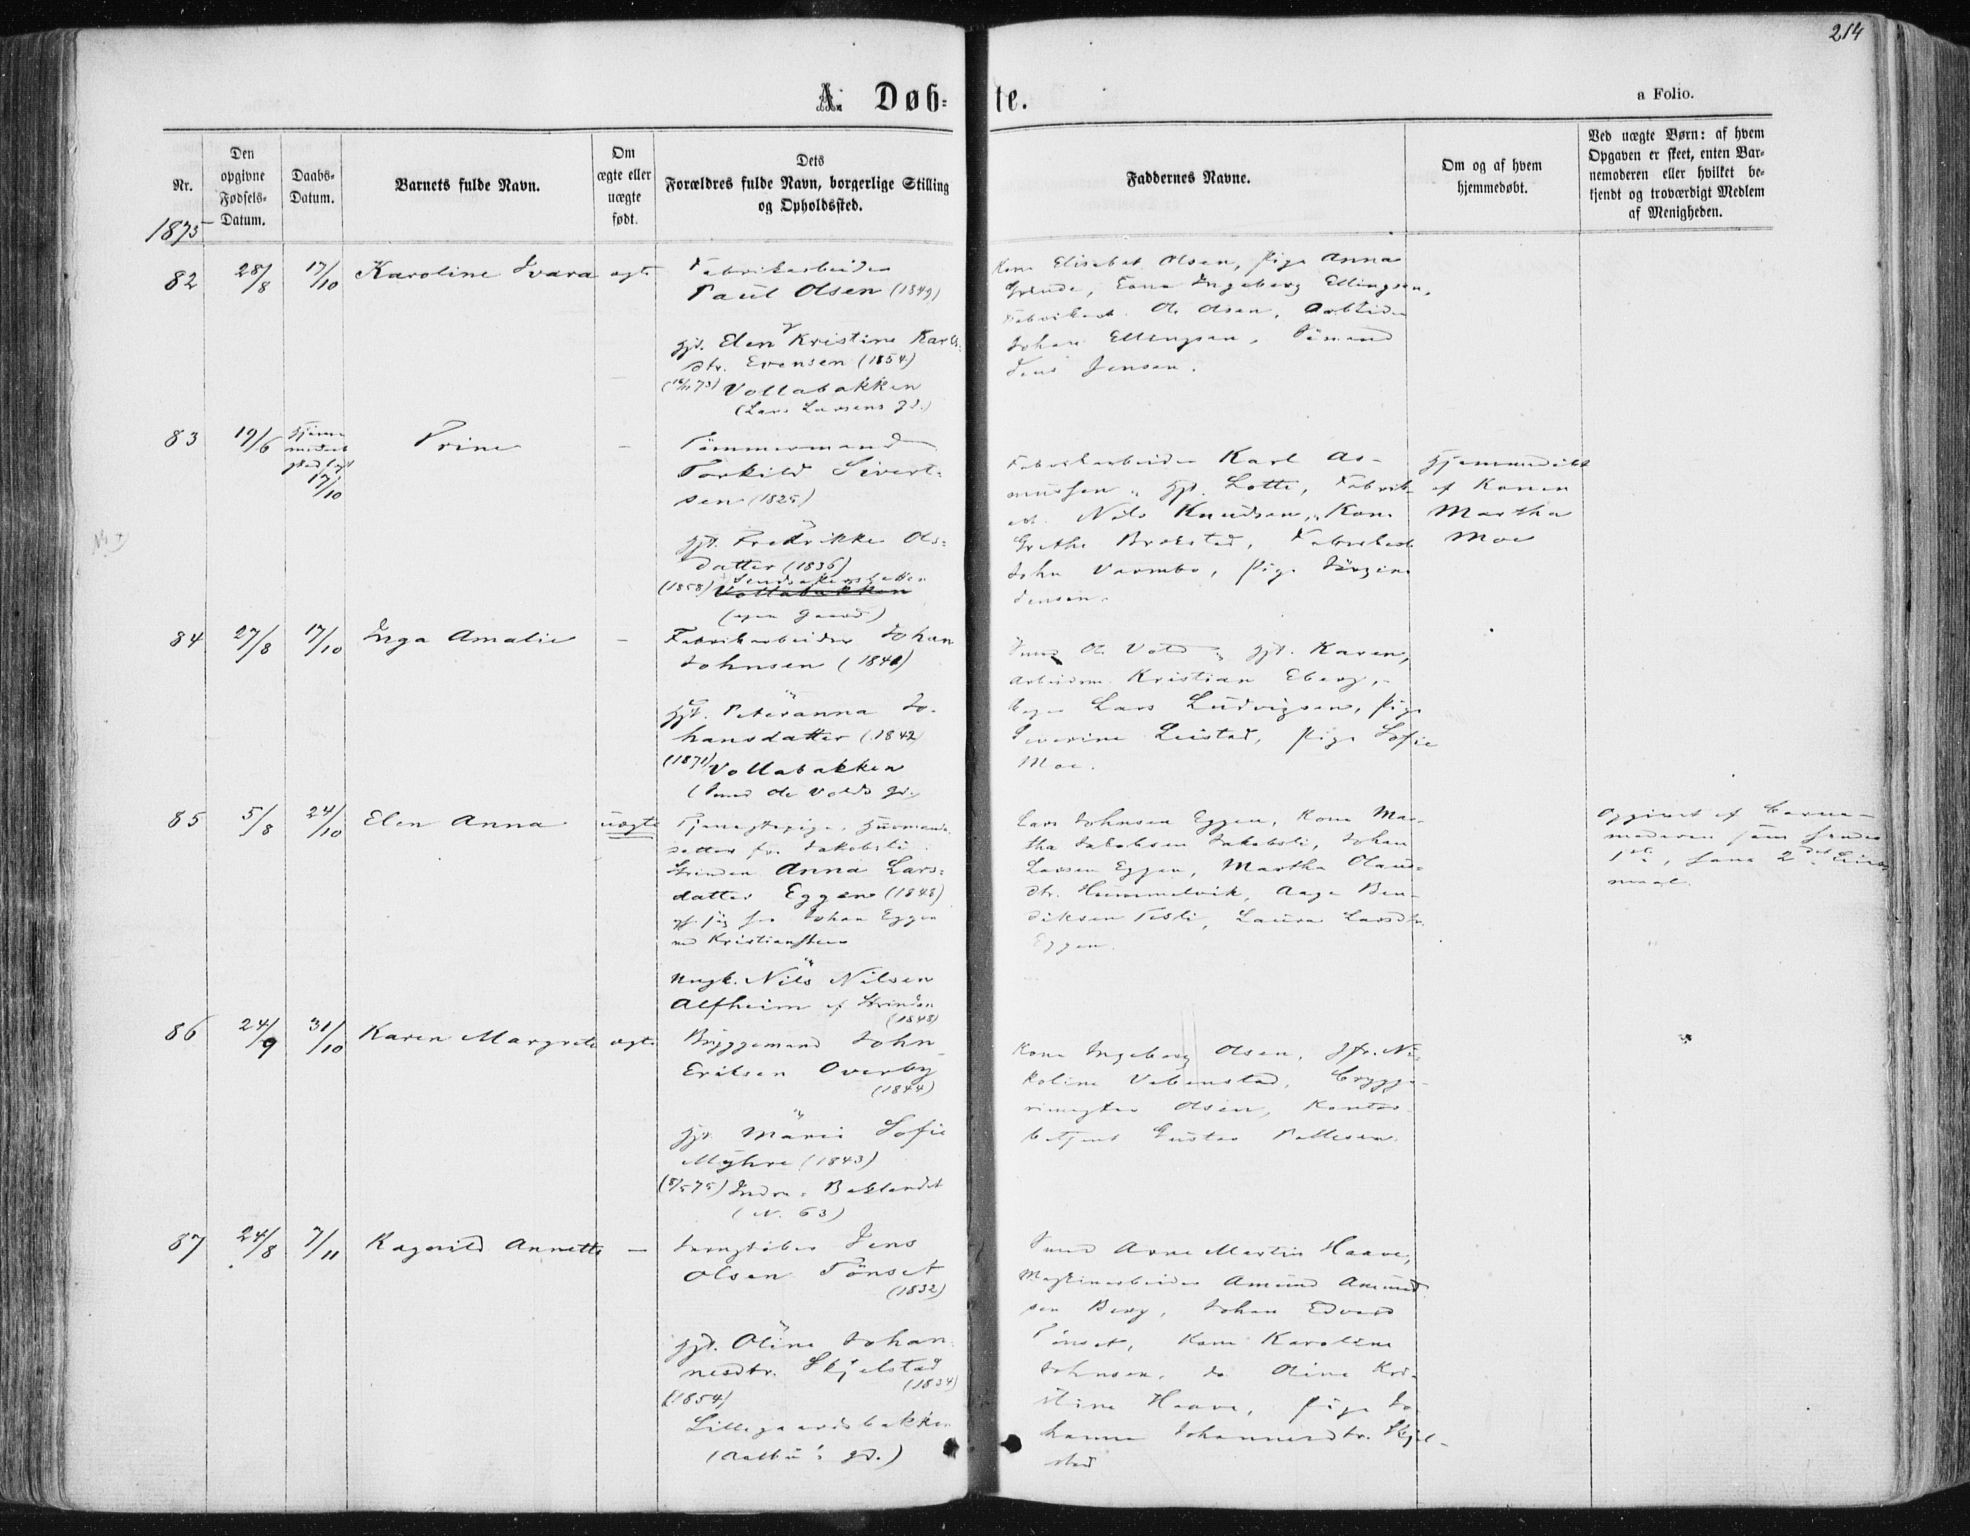 214
A. Døb-
te.
a Folio.
Nr.
Den
opgivne
Fødsels-
Datum.
Daabs-
Datum.
Barnets fulde Navn.
Om
ægte eller
uægte
født.
Dets
Forældres fulde Navn, borgerlige Stilling
og Opholdssted.
Faddernes Navne.
Om og af hvem
hjemmedøbt.
Ved uægte Børn: af hvem
Opgaven er skeet, enten Bar-
nemoderen eller hvilket be-
kjendt og troværdigt Medlem
af Menigheden.
1875
82 28/8 17/10 Karoline Ivara ægte
Fabrikarbeider
Paul Olsen (1849)
Hst. Elen Kristine Karls-
dtr. Evensen (1854)
Vollabakken
(Lars Larsens gd.)
Kone Elisabet Olsen, Pige Anna
Ingeborg Ellingsen,
Ole Olsen, Arbeider
Johan Ellingsen,
Jens Jensen.
83 19/6 17/10 Trine -
Tømmermand
Torkild Sivert-
sen (1825)
Fredrikke Ols-
datter (1836)
(1858)
Vollabakken
(egen Gaard)
Fabrikarbeider Karl As-
mussen, Lotte, Fabrik-
arb. Nils Knudsen, Kone
Grethe Brokstad,
John Varmbo, Pige
Jensen.
Hjemmedøbt
af Konen
Martha
Moe
84 27/8 17/10 Inga Amalie -
Fabrikarbeider Johan
Johnsen
Peteranna Jo-
hansdatter (1842)
(1871) Vollabakken
(Smed Ole Volds gd.)
Smed Ole Vold, Karen,
Arbeidsm. Kristian Eberg,
Lars Ludvigsen, Pige
Severine Leistad, Pige Sofie
Moe.
85 5/8 24/10 Elen Anna uægte
Tjenestepige, Huusmands-
datter fra Jakobsli
Strinden Anna Lars-
datter Eggen (1848)
Johan Eggen
ved Kristiansten
Ungk. Nils Nilsen
Alfheim af Strinden
(1848)
Lars Johnsen Eggen, Kone Mar-
tha Jakobsen Jakobsli, Johan
Larsen Eggen, Martha Olaus-
dtr. Hummelvik, Aage Ben-
diksen Tesli, Laura Larsdtr.
Eggen.
Opgivet af Barne-
moderen som hendes
1ste, hans 2det Leier-
maal.
86 24/9 31/10 Karen Margrete ægte
Bryggemand John
Eriksen Overby
(1844)
Marie Sofie
Myhre (1843)
(8/5 75) Indre Baklandet
(N. 63)
Kone Ingeborg Olsen, Jfr. Ni-
koline Vebenstad, Brygge-
Olsen, Kontor-
betjent Gustav Pettersen.
87 24/8 7/11 Ragnild Annette -
Jens
Olsen Tønset
(1832)
Oline Johan-
nesdtr. Skjelstad
(1834)
(1854)
Lillegaardsbakken
gd.)
Smed Arne Martin Haave,
Maskinarbeider Amund Amund-
sen Berg, Johan Edvard
Tønset, Kone Karoline
Johnsen, do Oline Kri-
stine Haave, Pige Jo-
hanna Johannesdtr. Skjel-
stad